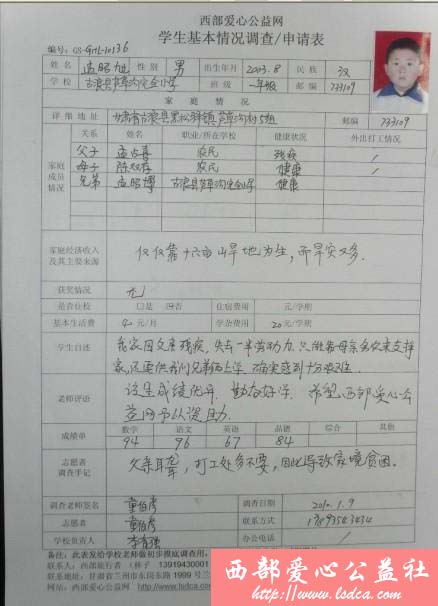 西部爱心公益网
学生基本情况调查/申请表
编号: GS-GHL-10136
姓名 孟昭旭 性别 男 出生年月 2003.8 民族 汉
学校 古浪县芦草沟完全小学 班级 一年级 邮编 733109
家庭情况
详细地址 甘肃省古浪县黑松驿镇芦草沟村5组 邮编 733109
关系 姓名 职业/所在学校 健康状况 外出打工情况
家庭成员情况
父子 孟占喜 农民 残疾 /
母子 陈双存 农民 健康 /
兄弟 孟昭博 古浪县芦草沟完全小学 健康
家庭经济收入及其主要来源 仅仅靠十六亩山旱地为生,而旱灾又多.
获奖情况 无
是否住校 □是 □否 住宿费用 元/学期
基本生活费 90 元/月 学杂费用 20 元/学期
学生自述 我家因父亲残疾,失去一半劳动力,只能靠母亲务农来支撑
家,还要供我们兄弟俩上学,确实感到十分艰难.
老师评语 该生成绩优异,勤奋好学,希望西部爱心公
益网予以资助.
成绩单 数学 语文 英语 品德 综合 其他
94 96 67 84
志愿者调查手记 父亲耳聋,打工处多不要,因此导致家境贫困.
调查老师签名 调查日期 2010.1.9
志愿者 联系方式
学校负责人 办公电话 /
备注:此表发给学校老师做初步摸底调查用,
联系人:西部旅行者(林子 13919430001
地址:甘肃省兰州市东岗东路1999号兰
网站:西部爱心公益网 http://www.lsdca
西部爱心公益社
www.lsdca.org